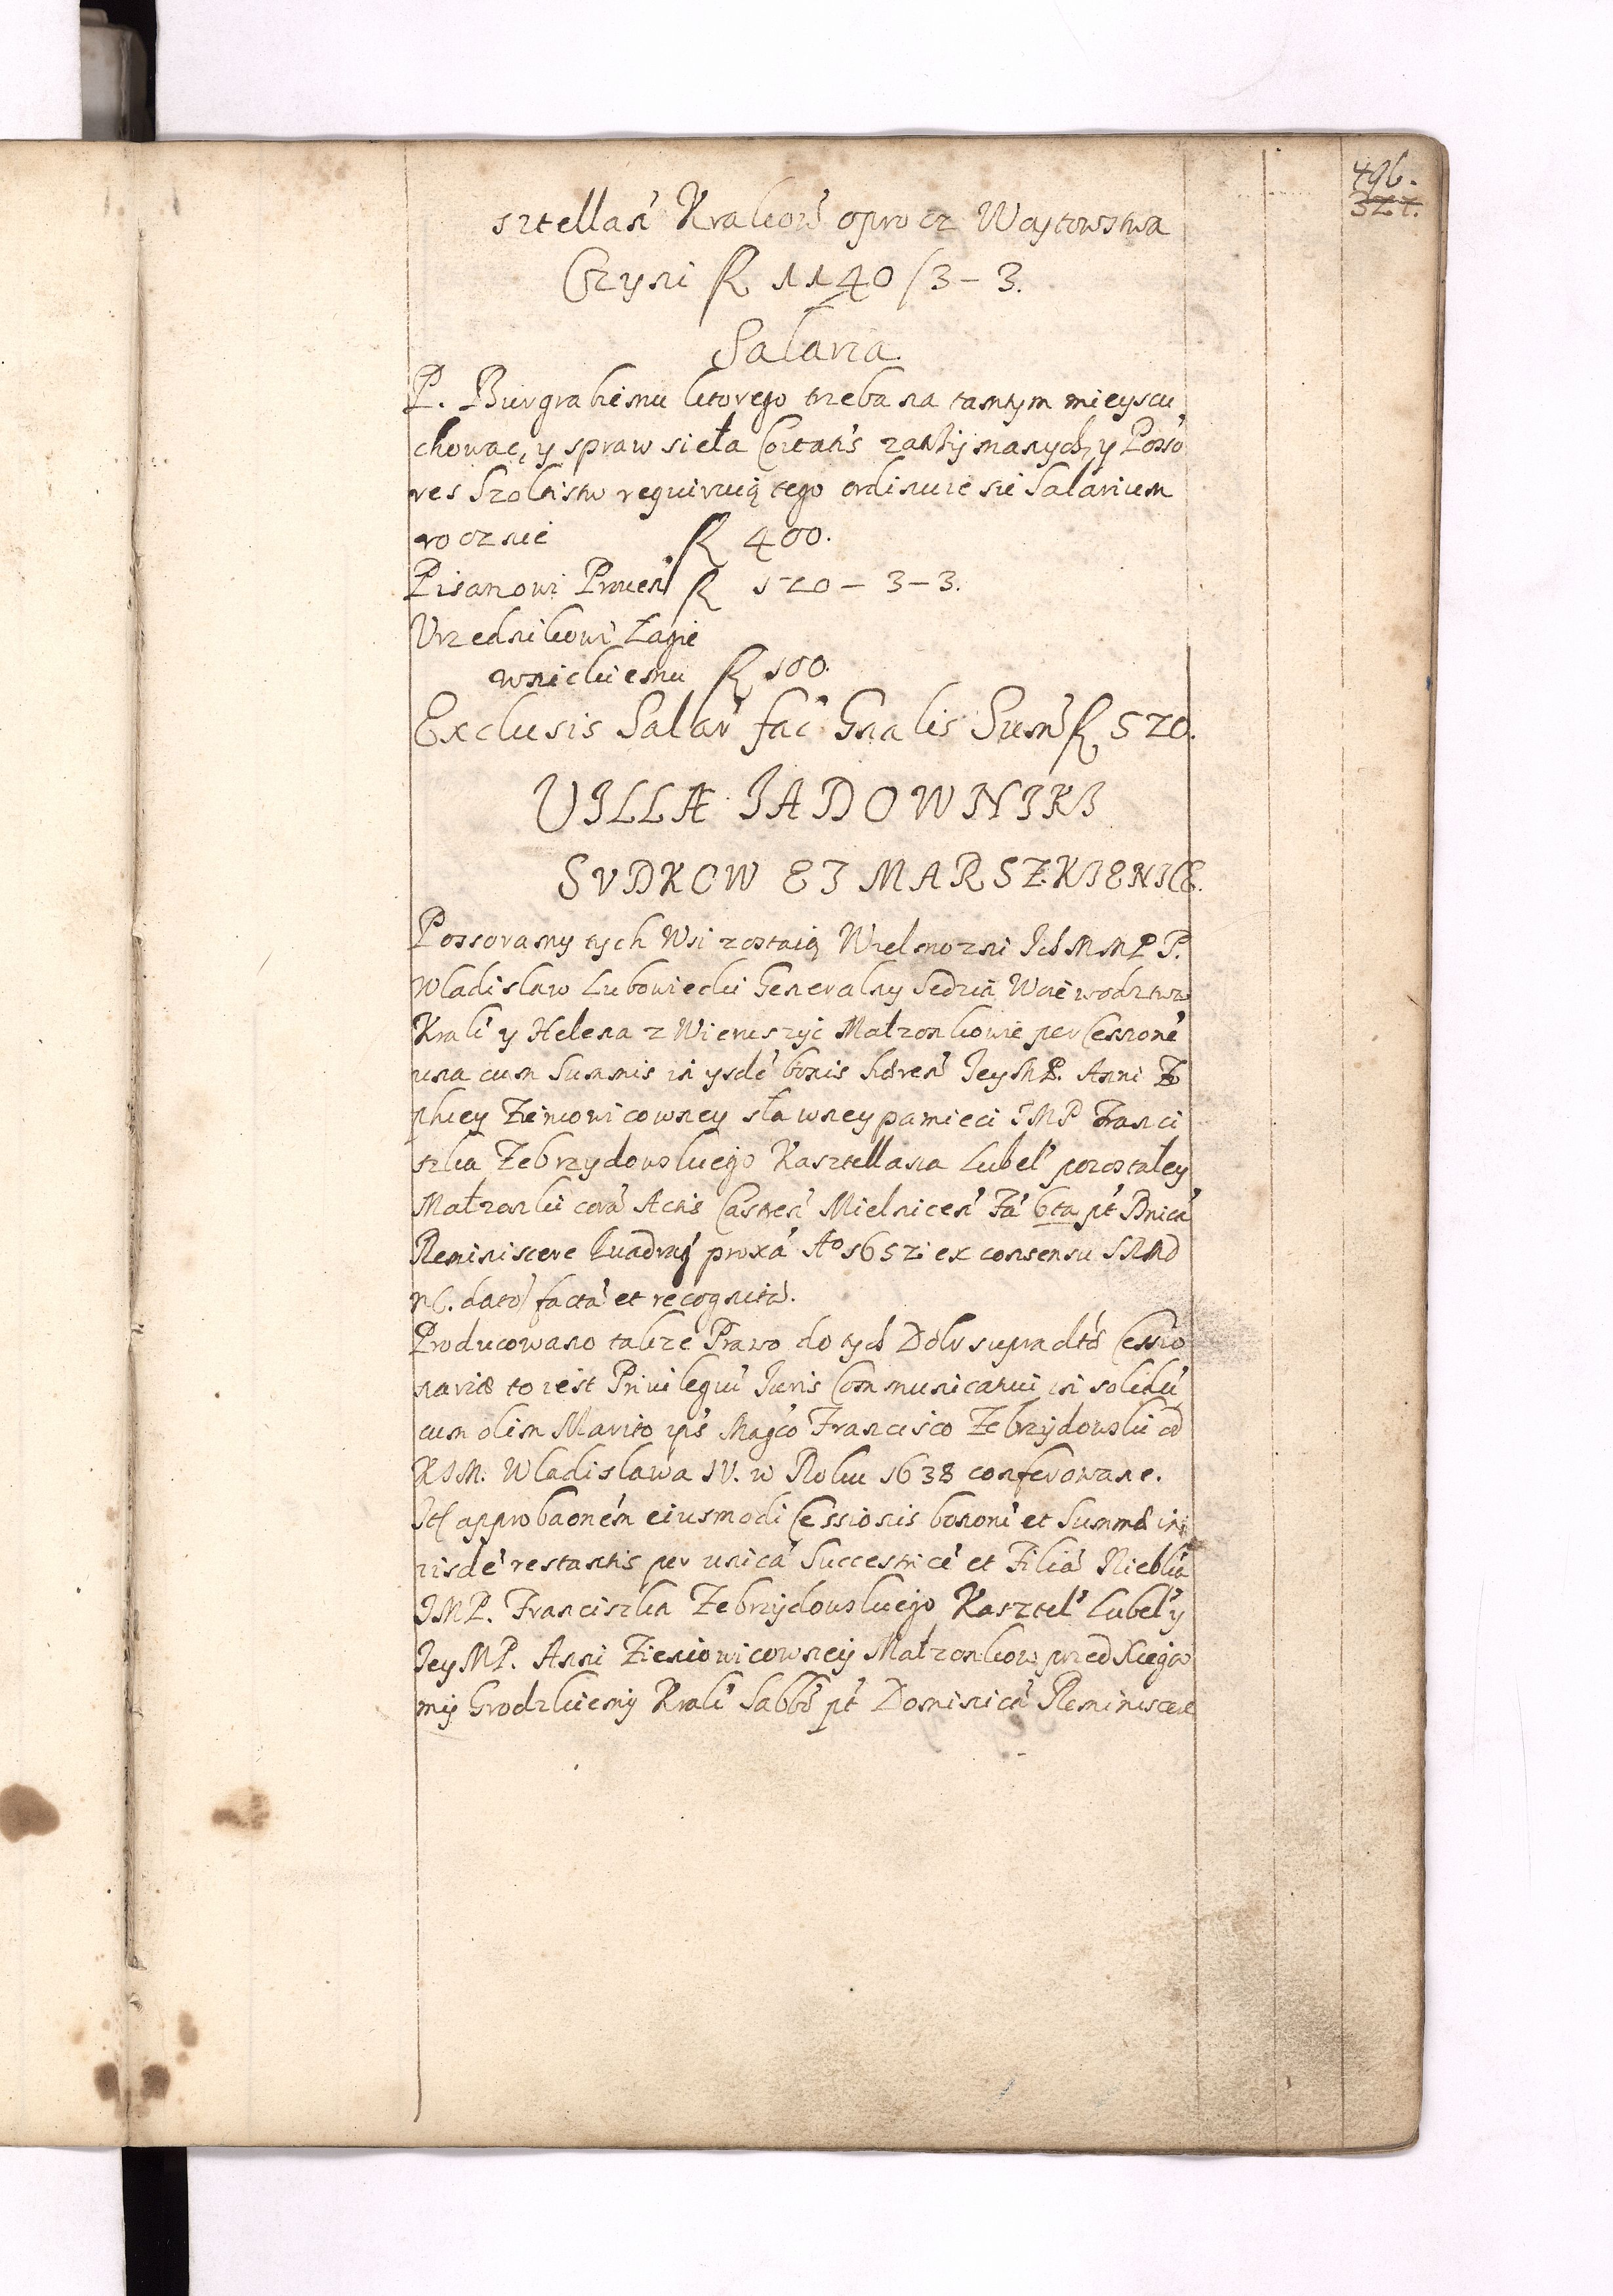 496.
321.
sztellań Krakoẃ oprocz Woytowstwa
Czyni fl 1140/3-3.
Salaria.
P. Burgrabiemu ktorego trzeba na tamtym mieyscu
chowac, y spraw sieła zatrzymanych, y Posso
res Szoltistw requiruią tego ordinuie sie Salarium
rocznie fl 400.
Pisarowi Proven fl 120-3-3.
Vrzednikowi Łagie
wnickiemu fl 100.
Exclusis Salar fac Gnalis Sum fl 520.
VILLÆ IADOWNIKI
SVDKOW ET MARSZKIENICE.
Possoramy tych Wsi zostaią Wielmozni IchMMPP.
Wladislaw Lubowiecki Generalny Sedzia Woiewodztwa
Krak y Helena z Wieruszyc Małzonkowie per Cessione
una cum Summis in ysde bonis hæren JeyMP. Anni Zo
phiey Zieniowicowney sławney pamieci JMP Franci
szka Zebrzydowskiego Kasztellana Lubel pozostałey
Małzonki cora Actis Castren Mielnicen Fa 6ta pt Dnica
Reminiscere Quadrag proxa Ao 1652 ex consensu SRM
dato facta et recognita.
Producowano takze Prawo do tych Dobr supradtos Cessio
narios to iest Privilegiu Iuris Communicativi in solidu
cum olim Marito ips Magco Francisco Zebrzydowski od
KJM. Wladislawa IV. w Roku 1638 conferowane.
Ite approbaonem eiusmodi Cessionis bonoru et Summa in
iisde restantis per unica Successrice et Filia Niebka
JMP. Franciszka Zebrzydowskiego Kasztel Lubel y
JeyMP. Anni Zieniowicowney Małzonkow przed Xiega
my Grodzkiemy Krak Sabbo pt Dominica Reminiscere